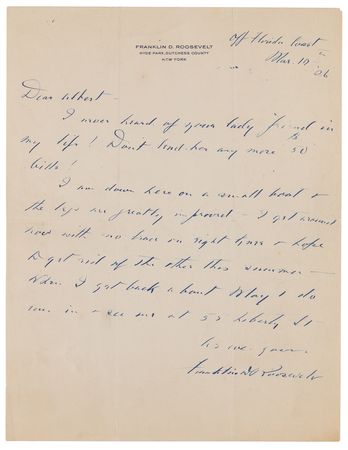 FRANKLIN D. ROOSEVELT
HYDE PARK, DUTCHESS COUNTY
NEW YORK
Off Florida Coast
Mar. 10 '26
Dear Albert –
I never heard of your lady friend in
my life! Don't lend her any more $50
bills!
I am down here on a small boat &
the legs are greatly improved – I get around
now with no brace on right knee & hope
to get rid of the other this summer –
When I get back about May 1 do
run in & see me at 55 Liberty St
As ever yours
Franklin D Roosevelt